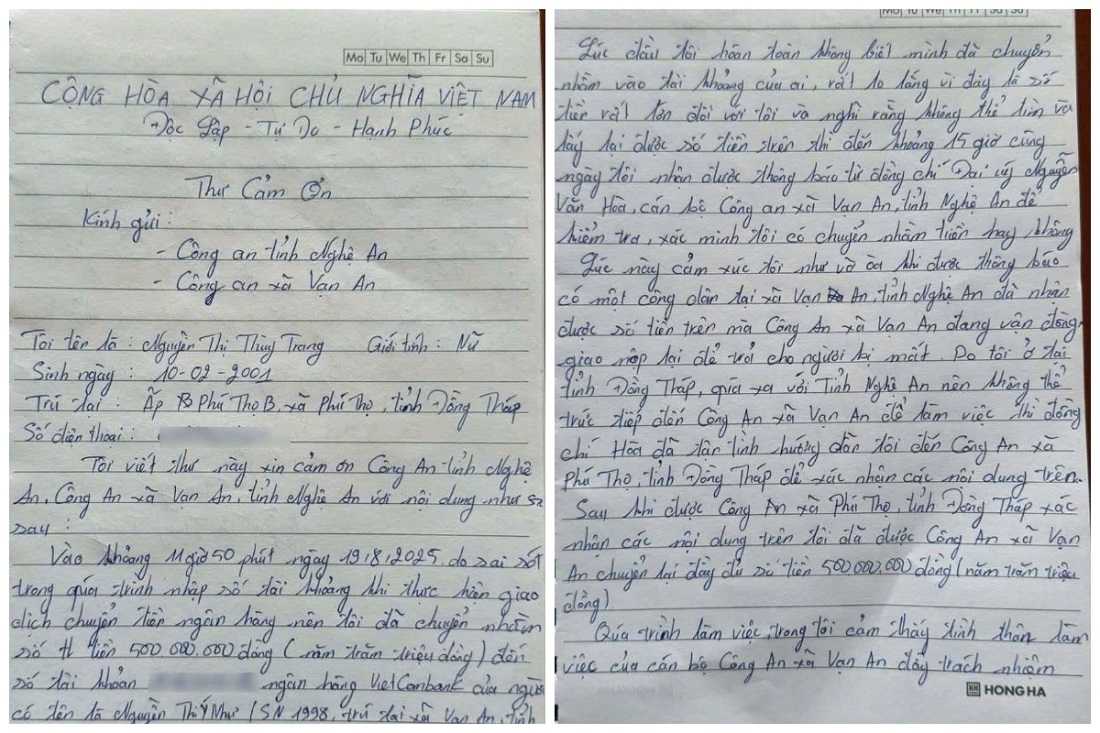 Mo Tu We Th Fr Sa Su
CỘNG HÒA XÃ HỘI CHỦ NGHĨA VIỆT NAM
Độc Lập - Tự Do - Hạnh Phúc
Thư Cảm Ơn
Kính gửi:
- Công an tỉnh Nghệ An
- Công an xã Vạn An
Tôi tên là: Nguyễn Thị Thùy Trang Giới tính: Nữ
Sinh ngày: 10-02-2001
Trú tại: Ấp Phú Thọ B, xã Phú Thọ, tỉnh Đồng Tháp
Số điện thoại:
Tôi viết thư này xin cảm ơn Công An tỉnh Nghệ
An, Công An xã Vạn An, tỉnh Nghệ An với nội dung như
sau:
Vào khoảng 11 giờ 50 phút ngày 19/8/2025, do sai sót
trong quá trình nhập số tài khoảng khi thực hiện giao
dịch chuyển tiền ngân hàng nên tôi đã chuyển nhầm
số tiền 500.000.000 đồng (năm trăm triệu đồng) đến
số tài khoản ngân hàng VietCombank của người
có tên là Nguyễn Thị Ý Như (SN 1998, trú tại xã Vạn An, tỉnh
Mo Tu We Th Fr Sa Su
Lúc đầu tôi hoàn toàn không biết mình đã chuyển
nhầm vào tài khoảng của ai, rất lo lắng vì đây là số
tiền rất lớn đối với tôi và nghĩ rằng không thể tìm và
lấy lại được số tiền trên thì đến khoảng 15 giờ cùng
ngày tôi nhận được thông báo từ đồng chí Đại úy Nguyễn
Văn Hòa, cán bộ Công an xã Vạn An, tỉnh Nghệ An để
kiểm tra, xác minh tôi có chuyển nhầm tiền hay không
Lúc này cảm xúc tôi như vỡ òa khi được thông báo
có một công dân tại xã Vạn An, tỉnh Nghệ An đã nhận
được số tiền trên mà Công An xã Vạn An đang vận động
giao nộp lại để trả cho người bị mất. Do tôi ở tại
tỉnh Đồng Tháp, quá xa với Tỉnh Nghệ An nên không thể
trực tiếp đến Công An xã Vạn An để làm việc thì đồng
chí Hòa đã tận tình hướng dẫn tôi đến Công An xã
Phú Thọ, tỉnh Đồng Tháp để xác nhận các nội dung trên.
Sau khi được Công An xã Phú Thọ, tỉnh Đồng Tháp xác
nhận các nội dung trên tôi đã được Công An xã Vạn
An chuyển lại đầy đủ số tiền 500.000.000 đồng (năm trăm triệu
đồng).
Qúa trình làm việc, trong tôi cảm thấy tinh thần làm
việc của cán bộ Công An xã Vạn An đầy trách nhiệm
HONG HA